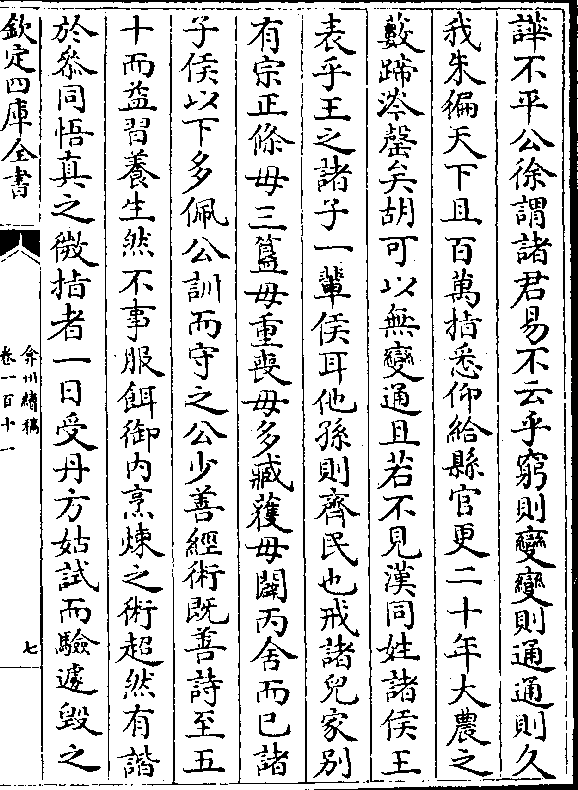 譁不平公徐謂諸君易不云乎窮則變變則通通則久
我朱徧天下且百萬指悉仰給縣官更二十年大農之
藪蹄涔罄矣胡可以無變通且若不見漢同姓諸侯王
表乎王之諸子一輩侯耳他孫則齊民也戒諸兒家别
有宗正條毋三簋毋重喪毋多臧獲毋闢丙舍而已諸
子侯以下多佩公訓而守之公少善經術既善詩至五
十而益習養生然不事服餌御内烹煉之術超然有諧
於叅同悟真之微㫖者一日受丹方姑試而驗遽毀之
欽定四庫全書
弇州續稿
卷一百十一
七